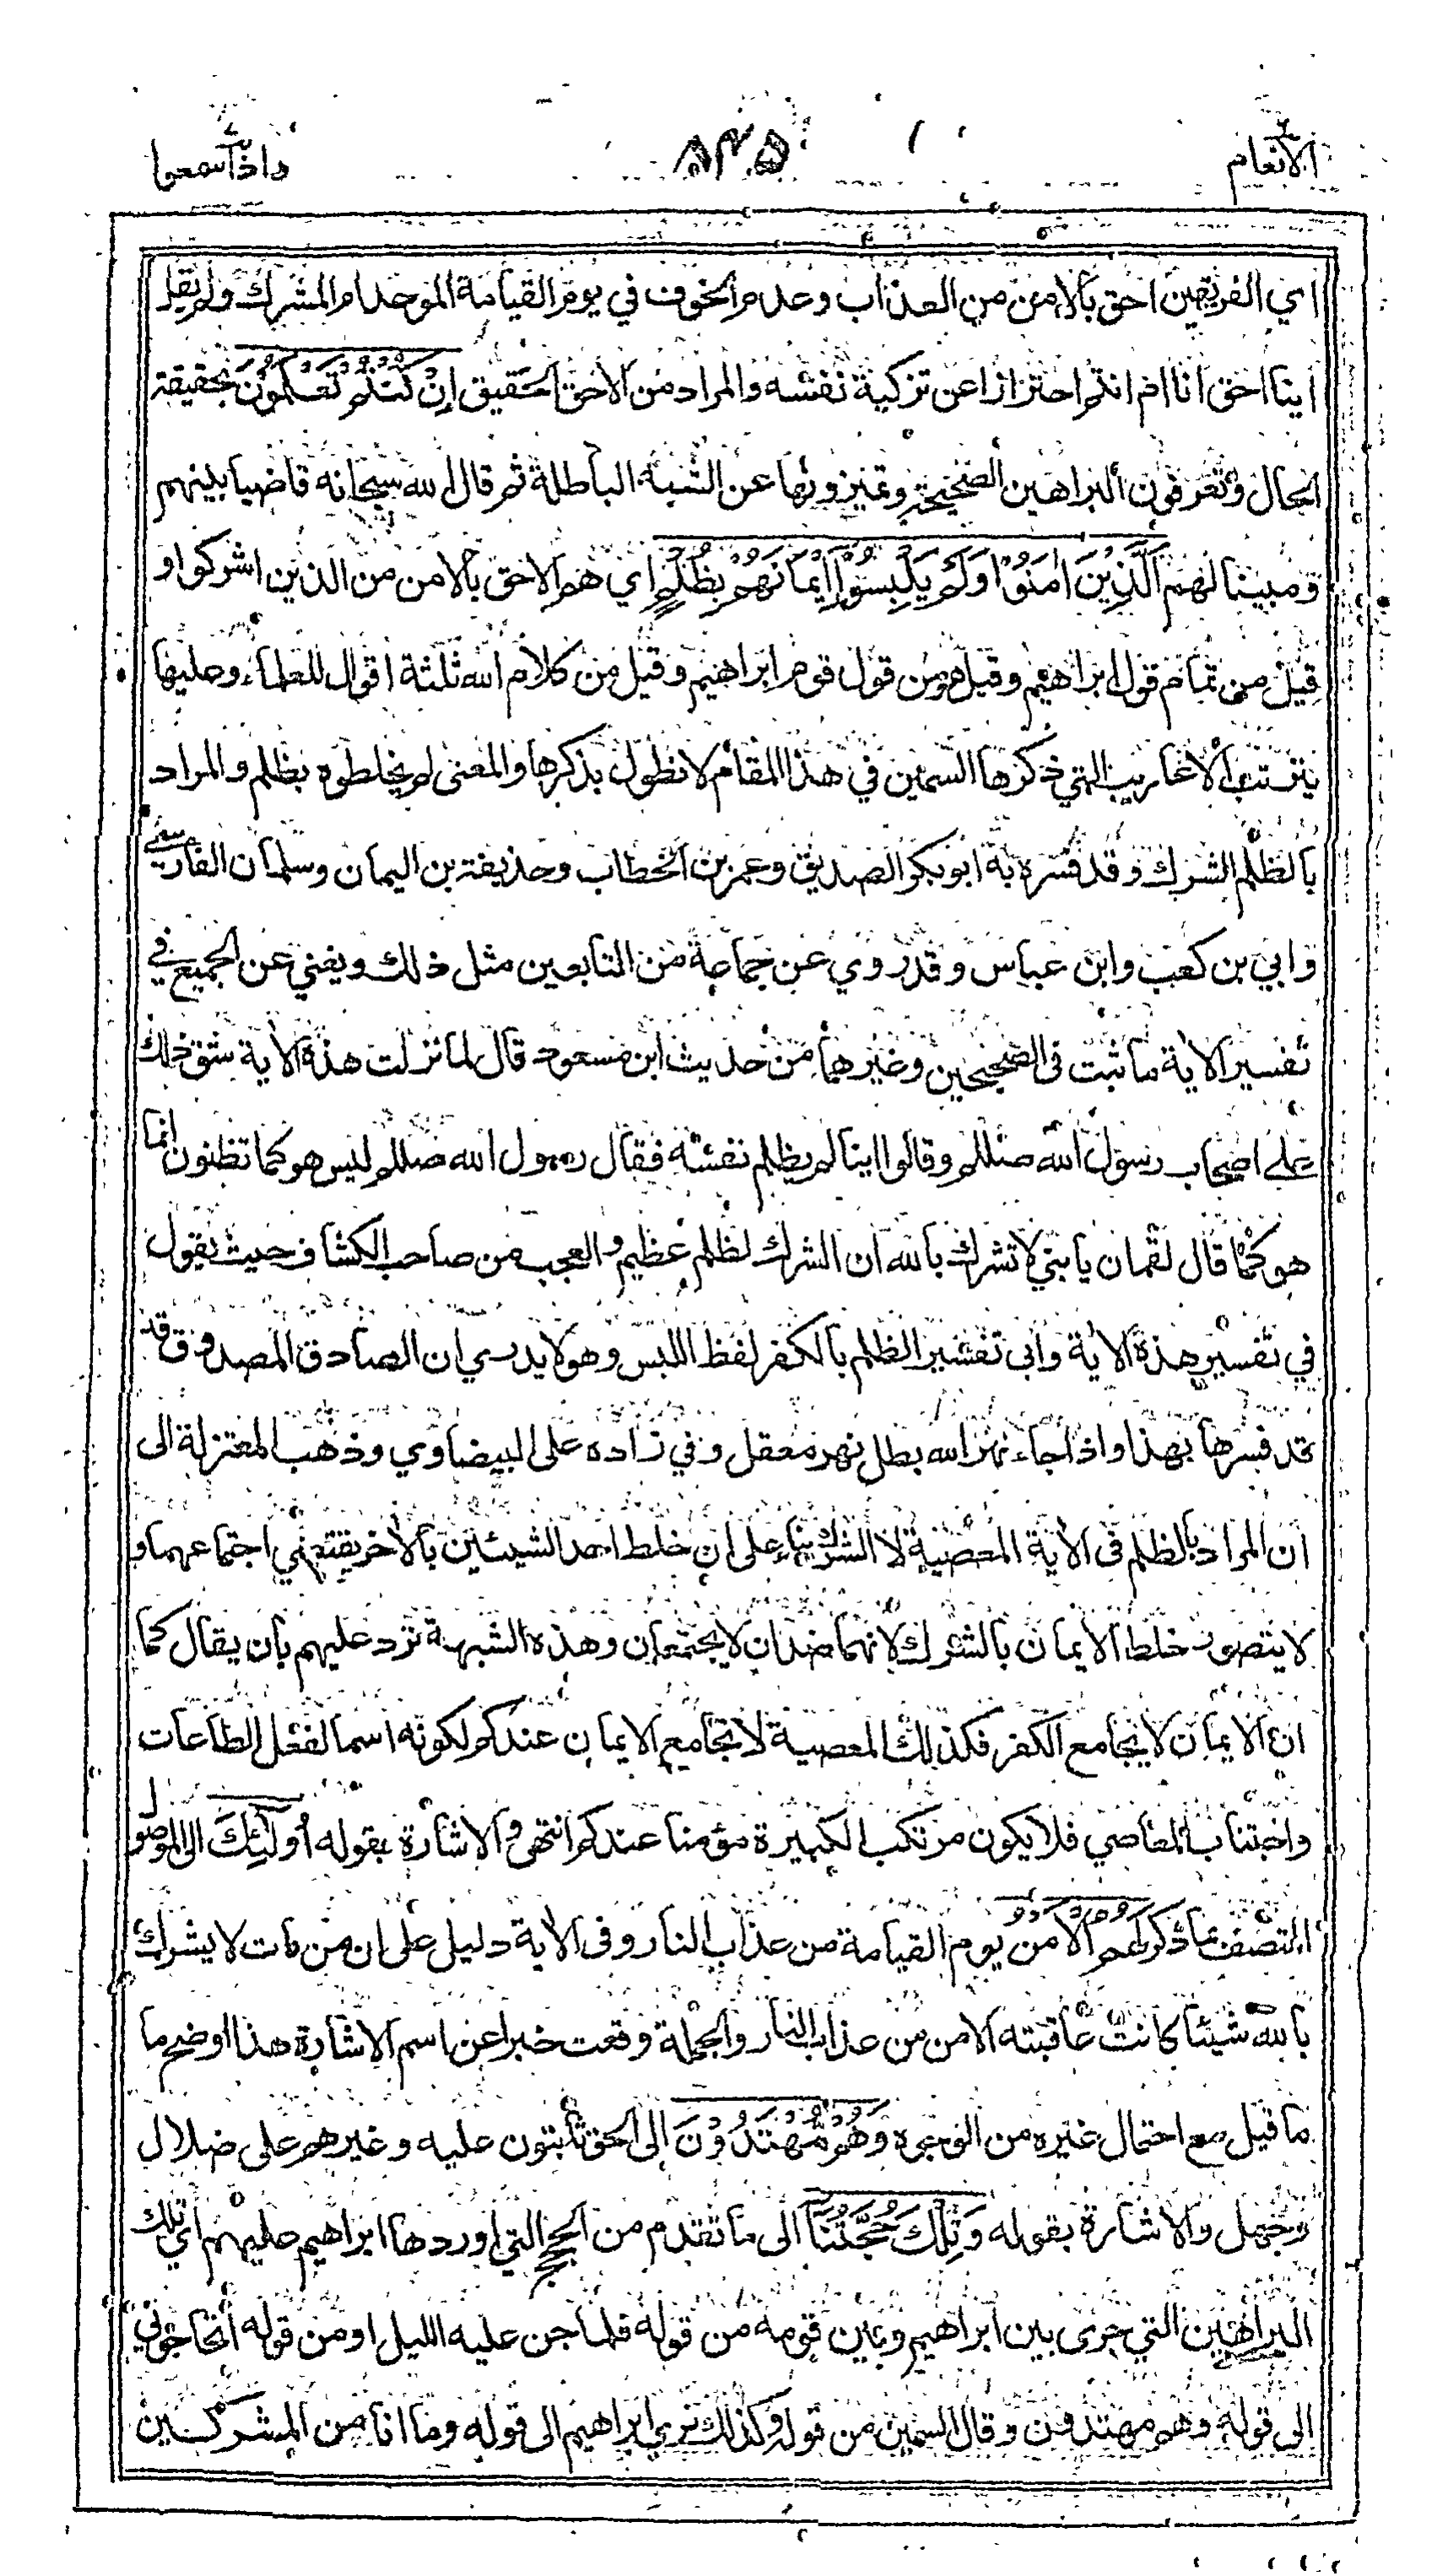 الانعام
٨٣٥
واذا سمعوا
اي الفريقين احق بالامن من العذاب وعدم الخوف في يوم القيامة الموحد ام المشرك ولم يقل
اينا احق انا ام انتم احترازا عن تزكية نفسه والمراد من الاحق الحقيق اِنْ كُنْتُمْ تَعْلَمُوْنَ بحقيقة
الحال وتعرفون البراهين الصحيحة وتميزونها عن الشبه الباطلة ثم قال الله سبحانه قاضيا بينهم
ومبينا لهم اَلَّذِيْنَ اٰمَنُوْا وَلَمْ يَلْبِسُوْا اِيْمَانَهُمْ بِظُلْمٍ اي هم الاحق بالامن من الذين اشركوا و
قيل من تمام قول ابراهيم وقيل هو من قول قوم ابراهيم وقيل من كلام الله ثلثة اقوال للعلماء وعليها
يترتب الاعاريب التي ذكرها السمين في هذا المقام لا نطول بذكرها والمعنى لم يخلطوه بظلم والمراد
بالظلم الشرك وقد فسره به ابو بكر الصديق وعمر بن الخطاب وحذيفة بن اليمان وسلمان الفارسي
وابي بن كعب وابن عباس وقد روي عن جماعة من التابعين مثل ذلك ويغني عن الجميع في
تفسير الاية ما ثبت في الصحيحين وغيرهما من حديث ابن مسعود قال لما نزلت هذه الاية شق ذلك
على اصحاب رسول الله صللم وقالوا اينا لم يظلم نفسه فقال رسول الله صللم ليس هو كما تظنون انما
هو كما قال لقمان يا بني لا تشرك بالله ان الشرك لظلم عظيم والعجب من صاحب الكشاف حيث يقول
في تفسير هذه الاية وابى تفسير الظلم بالكفر لفظ اللبس وهو لا يدري ان الصادق المصدوق قد
قد فسرها بهذا واذا جاء نهر الله بطل نهر معقل وفي زاده على البيضاوي وذهب المعتزلة الى
ان المراد بالظلم في الاية المعصية لا الشرك بناء على ان خلط احد الشيئين بالاخر يقتضي اجتماعهما و
لا يتصور خلط الايمان بالشرك لانهما ضدان لا يجتمعان وهذه الشبهة ترد عليهم بان يقال كما
ان الايمان لا يجامع الكفر فكذلك المعصية لا تجامع الايمان عندكم لكونه اسما لفعل الطاعات
واجتناب المعاصي فلا يكون مرتكب الكبيرة مؤمنا عندكم انتهى والاشارة بقوله اُولٰٓئِكَ الى الموصول
المتصف بما ذكر لَهُمُ الْاَمْنُ يوم القيامة من عذاب النار وفي الاية دليل على ان من مات لا يشرك
بالله شيئا كانت عاقبته الامن من عذاب النار والجملة وقعت خبرا عن اسم الاشارة هذا اوضح ما
ما قيل مع احتمال غيره من الوجوه وَهُمْ مُّهْتَدُوْنَ الى الحق ثابتون عليه وغيرهم على ضلال
وجهل والاشارة بقوله وَتِلْكَ حُجَّتُنَآ الى ما تقدم من الحجج التي اوردها ابراهيم عليهم اي تلك
البراهين التي جرى بين ابراهيم وبين قومه من قوله فلما جن عليه الليل او من قوله اتحاجوني
الى قوله وهم مهتدون وقال السمين من قوله وكذلك نري ابراهيم الى قوله وما انا من المشركين